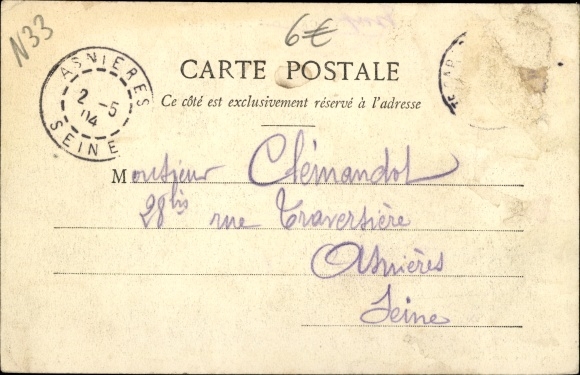 N33
6€
ASNIÈRES
2 -5
04
SEINE
CARTE POSTALE
Ce côté est exclusivement réservé à l'adresse
Monsieur Clémandot
28 bis rue Traversière
Asnières
Seine